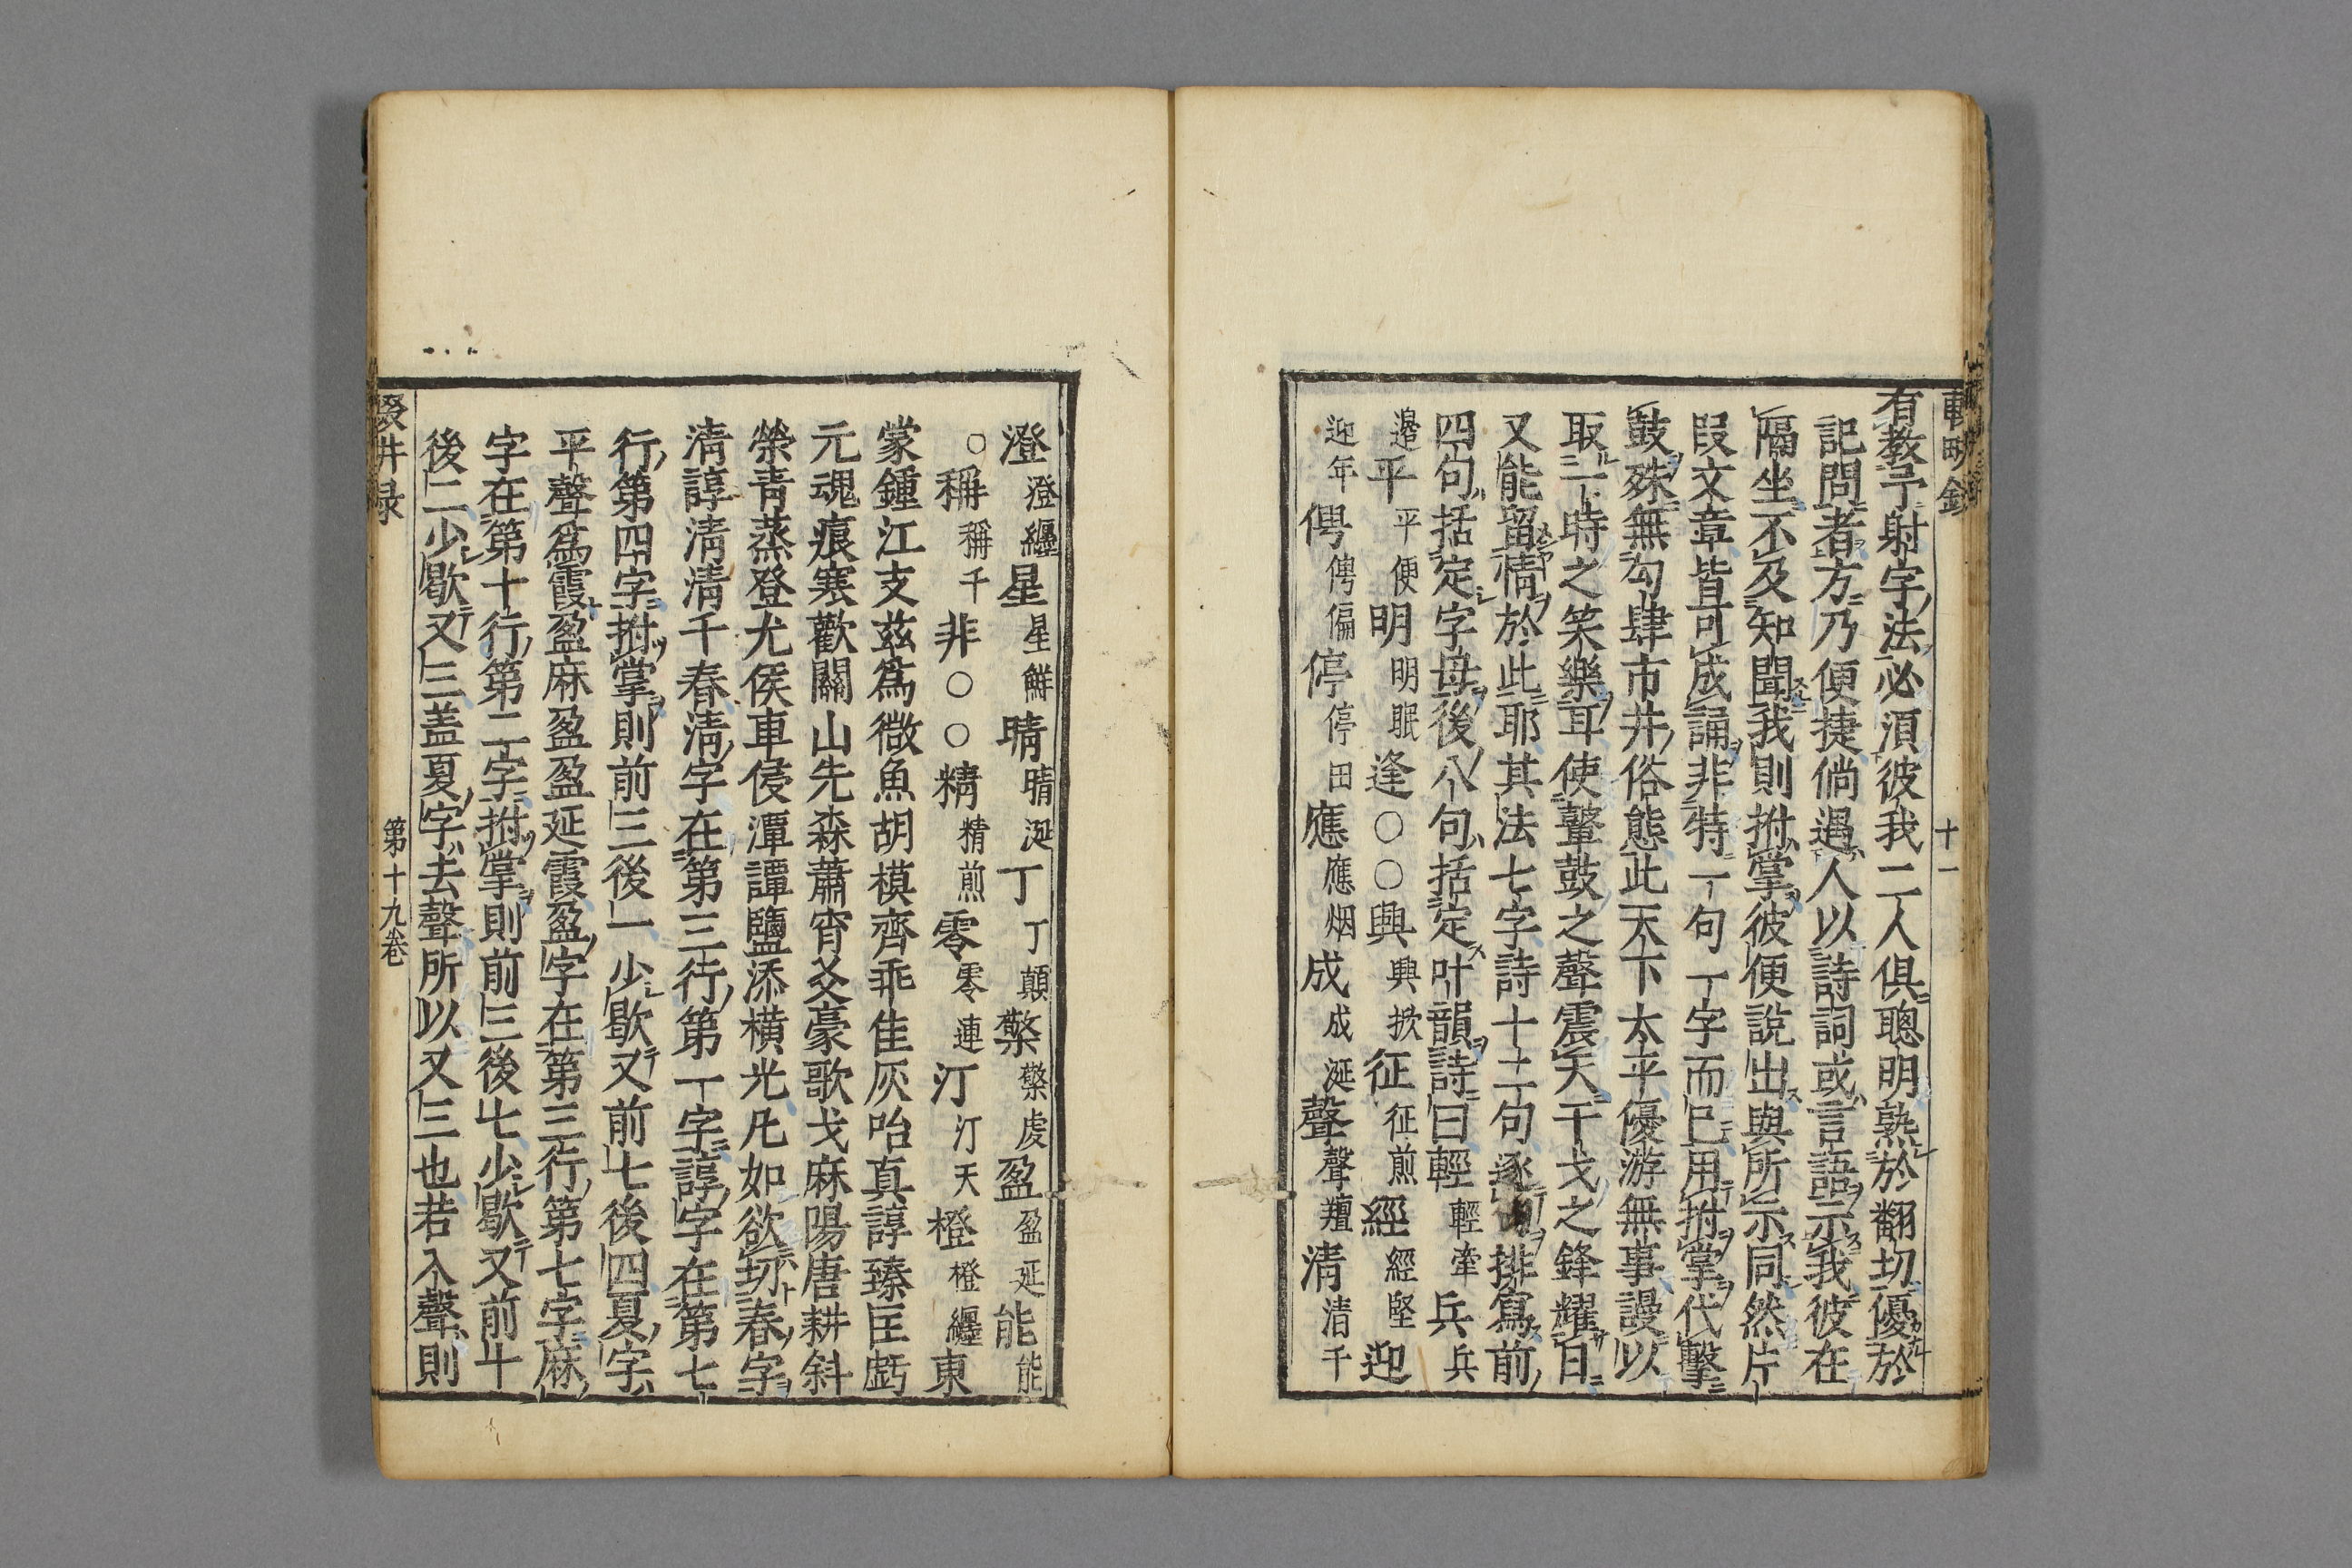 十一
有教予射字法必湏彼我二人俱聰明熟於翻切優於
記問者方乃便捷倘遇人以詩詞或言語示我彼在
隔坐不及知聞我則拊掌彼便說出與所示同然片
叚文章皆可成誦非特一句一字而已用拊掌代擊
鼓殊無勾肆市井俗態此天下太平優游無事謾以
取一時之笑樂耳使鼙鼓之聲震天干戈之鋒耀日
又能留情於此耶其法七字詩十二句逐排寫前
四句括定字母後八句括定叶韻詩曰輕輕牽兵兵
邉平平便明明眠逢〇〇興興掀征征煎經經堅迎
迎年俜俜偏停停田應應烟成成涎聲聲羶清清千
澄澄纒星星鮮晴晴涎丁丁顛檠檠虔盈盈延能能
〇稱稱千非〇〇精精煎零零連汀汀天橙橙纒東
蒙鍾江支兹為微魚胡模齊乖佳灰咍真諄臻匡虧
元魂痕寒歡關山先森蕭宵爻豪歌戈麻陽唐耕斜
榮青蒸登尤侯車侵潭譚鹽添横光凡如欲切春字
清諄清清千春清字在第三行第一字諄字在第七
行第四字拊掌則前三後一少歇又前七後四夏字
平聲為霞盈麻盈盈延霞盈字在第三行第七字麻
字在第十行第二字拊掌則前三後七少歇又前十
後二少歇又三盖夏字去聲所以又三也若入聲則
第十九卷